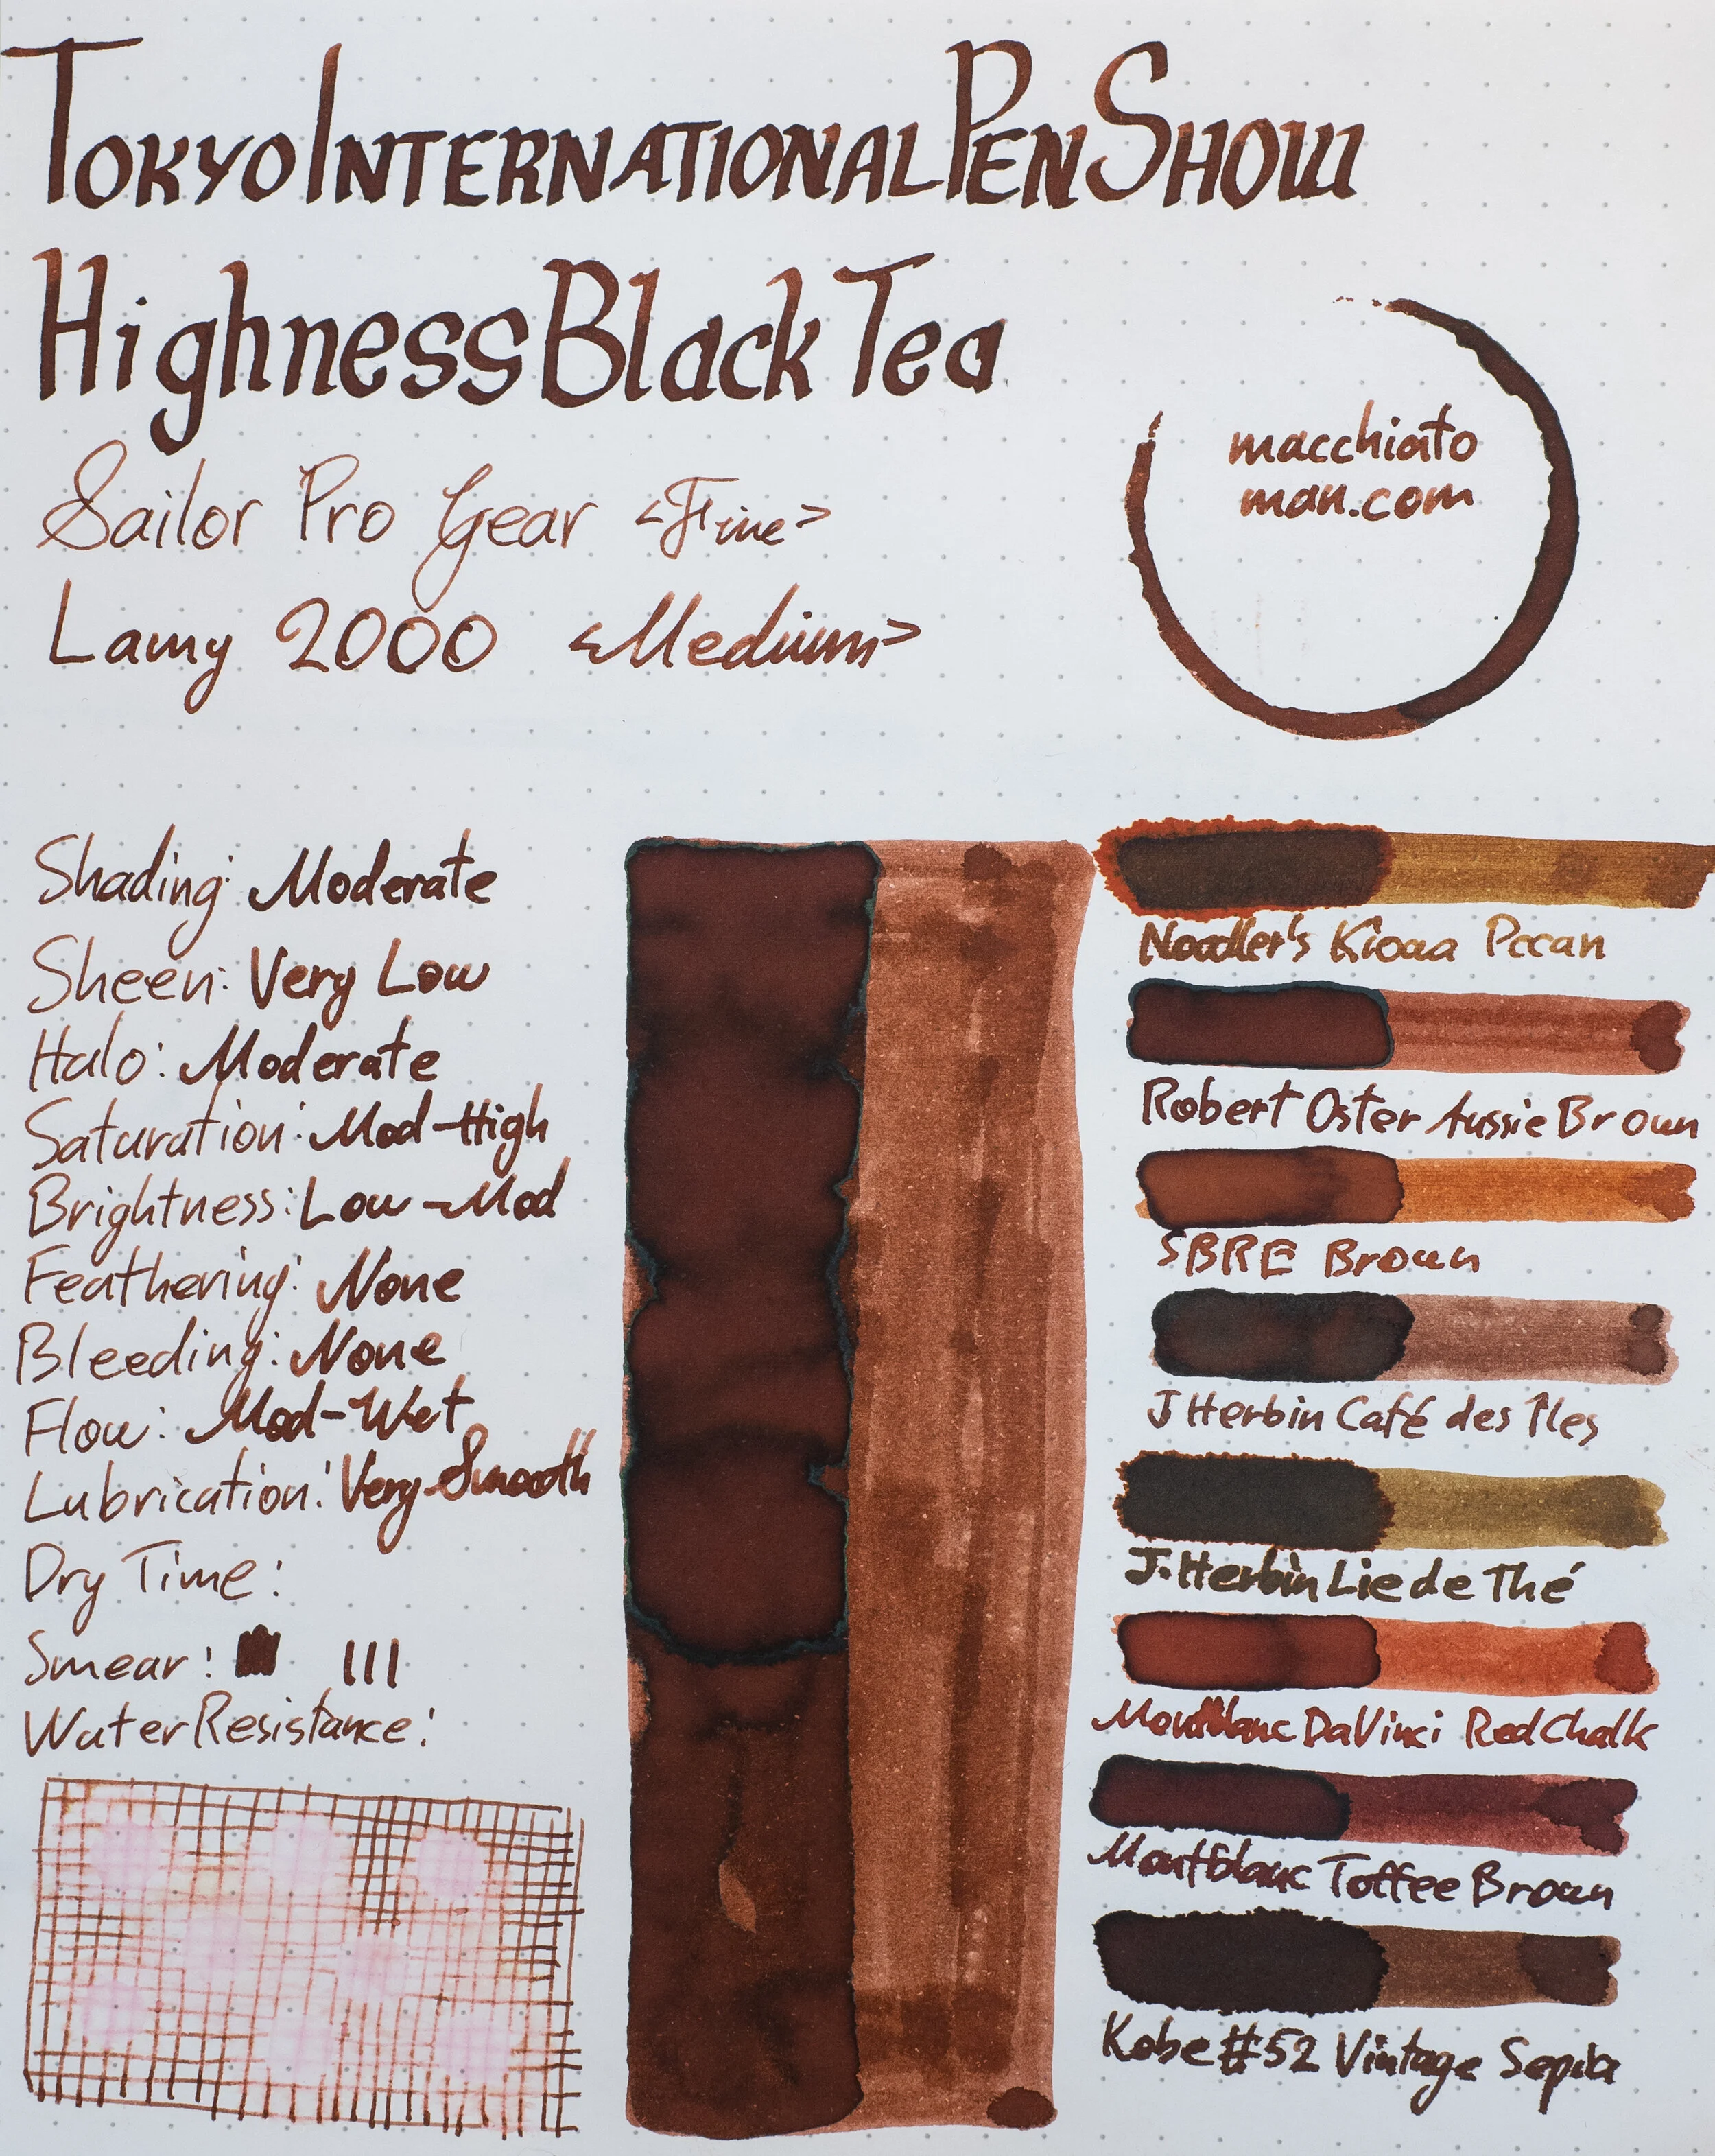 Tokyo International Pen Show
Highness Black Tea
Sailor Pro Gear <Fine>
Lamy 2000 <Medium>
macchiato
man.com
Shading: Moderate
Sheen: Very Low
Halo: Moderate
Saturation: Mod-High
Brightness: Low-Mod
Feathering: None
Bleeding: None
Flow: Mod-Wet
Lubrication: Very Smooth
Dry Time:
Smear:
Water Resistance:
Noodler's Kiowa Pecan
Robert Oster Aussie Brown
SBRE Brown
J Herbin Café des Îles
J. Herbin Lie de Thé
Montblanc DaVinci Red Chalk
Montblanc Toffee Brown
Kobe #52 Vintage Sepia